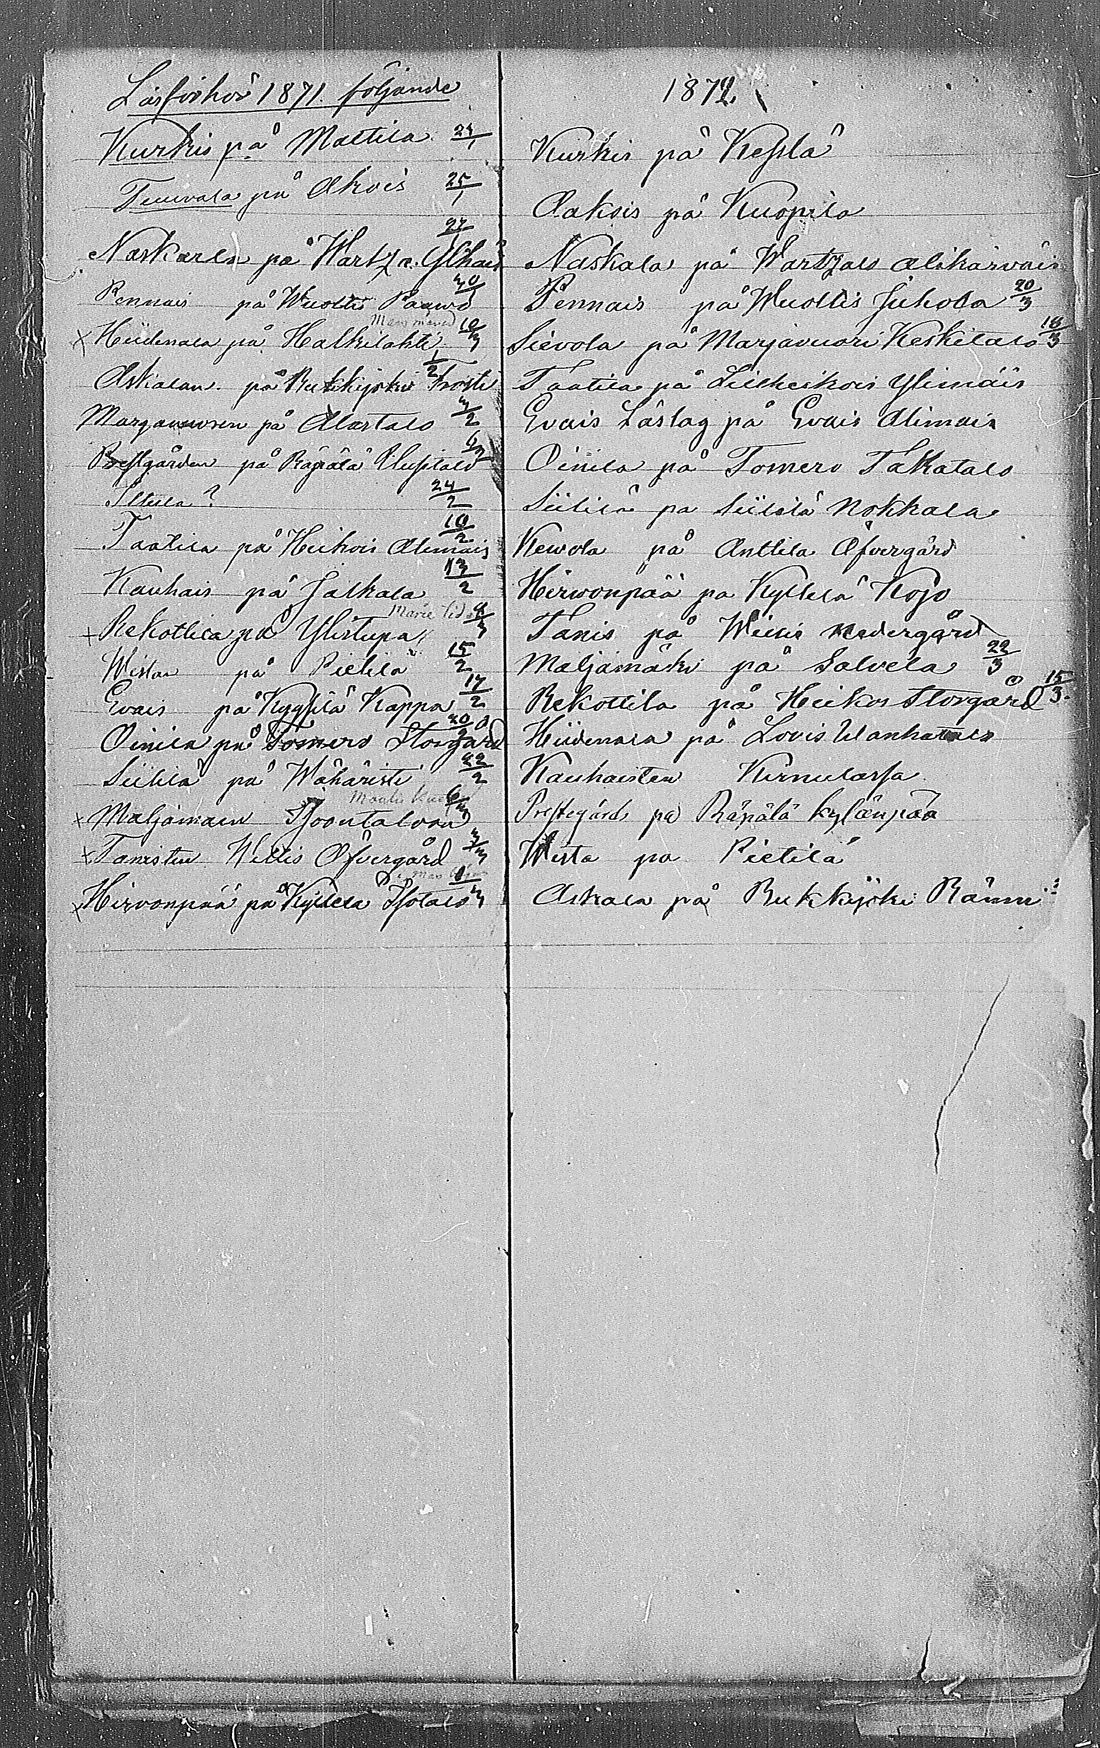 Läsförhör 1871. följande
Kurkis på Mattila 24/1
Tuuvala på Akois 25/1
Naskarla på Wartz a. Ylikais 27/1
Pennais på Wuoltis Paawo 30/1
x Hiidenala på Halkilahti 10/3
Askalan på Rukkijoki Frosti 1/2
Marjavuoren på Alastalo 3/2
Prestgården på Räpälä Uusitalo 6/2
Iltula? 24/2
Taatila på Heikois Alimais 10/2
Kauhais på Jalkala 13/2
Marie bd.
x Rekottila på Ylistupa 8/3
Wistan på Pietilä 15/2
Evais på Kyynilä Kappa 17/2
Oinila på Tomero Storgård 20/2
Siitilä på Wähäristi 22/2
x Maljamäen Joontalossa 6/3
x Tanisten Wellis Öfvergård 3/3
x Hirvonpää på Kyllelä Isotalo 1/3
1872.
Kurkis på Kesslä
Aaksis på Kuopila
Naskala på Wartzals alikärväis
Pennais på Wuoltis Juhola 20/3
Sievola på Marjavuori Keskitalo 18/3
Taatila på Lillheikois Ylimäis
Evais Läslag på Evais Alimais
Oinila på Tomero Takatalo
Siitilä på Siitilä Nokkala
Kewola på Anttila Öfvergård
Hirwonpää på Kyllelä Kojo
Tanis på Wellis nedergård
Maljamäki på Salvela 22/3
Rekottila på Heikos Storgård 15/3
Hiidenala på Lovis Wanhatalo
Kauhaisten Kirnulassa
Prestegårds på Räpälä kylänpää
Wista på Pietilä
Askala på Rukkijoki Ränni